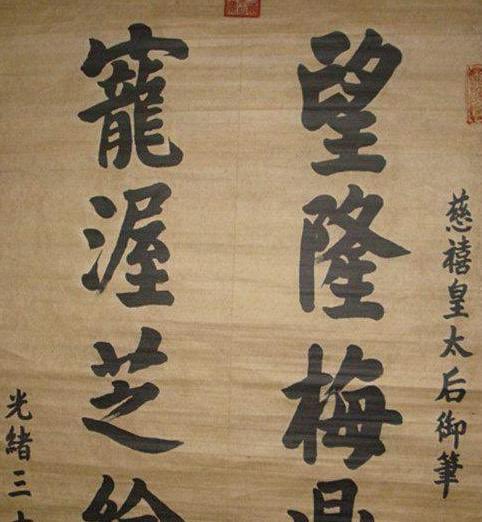 慈禧皇太后御筆
望隆梅鼎
寵渥芝綸
光緒三十